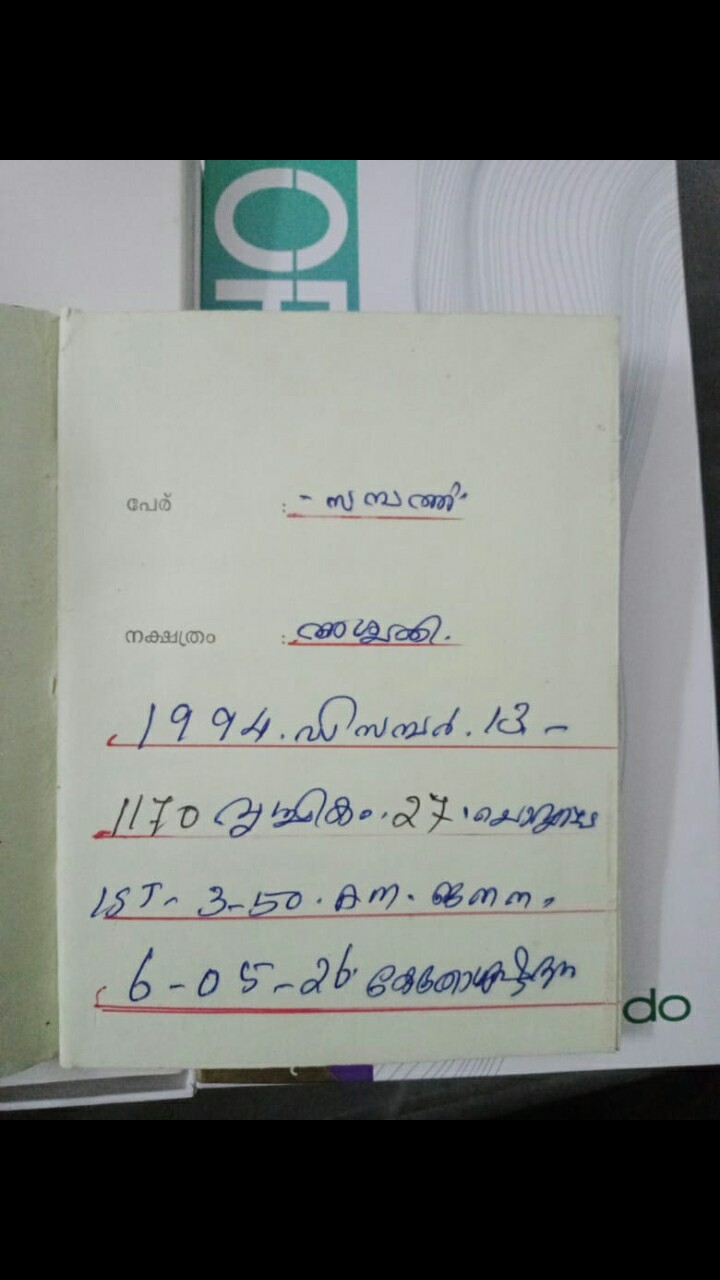 OF
പേര് : - സമ്പത്ത്.
നക്ഷത്രം : അശ്വതി.
1994. ഡിസമ്പർ. 13 -
1170 വൃശ്ചികം. 27. ചൊവ്വാഴ്ച
IST - 3-50. A.M. ജനനം,
6-05-26.
do